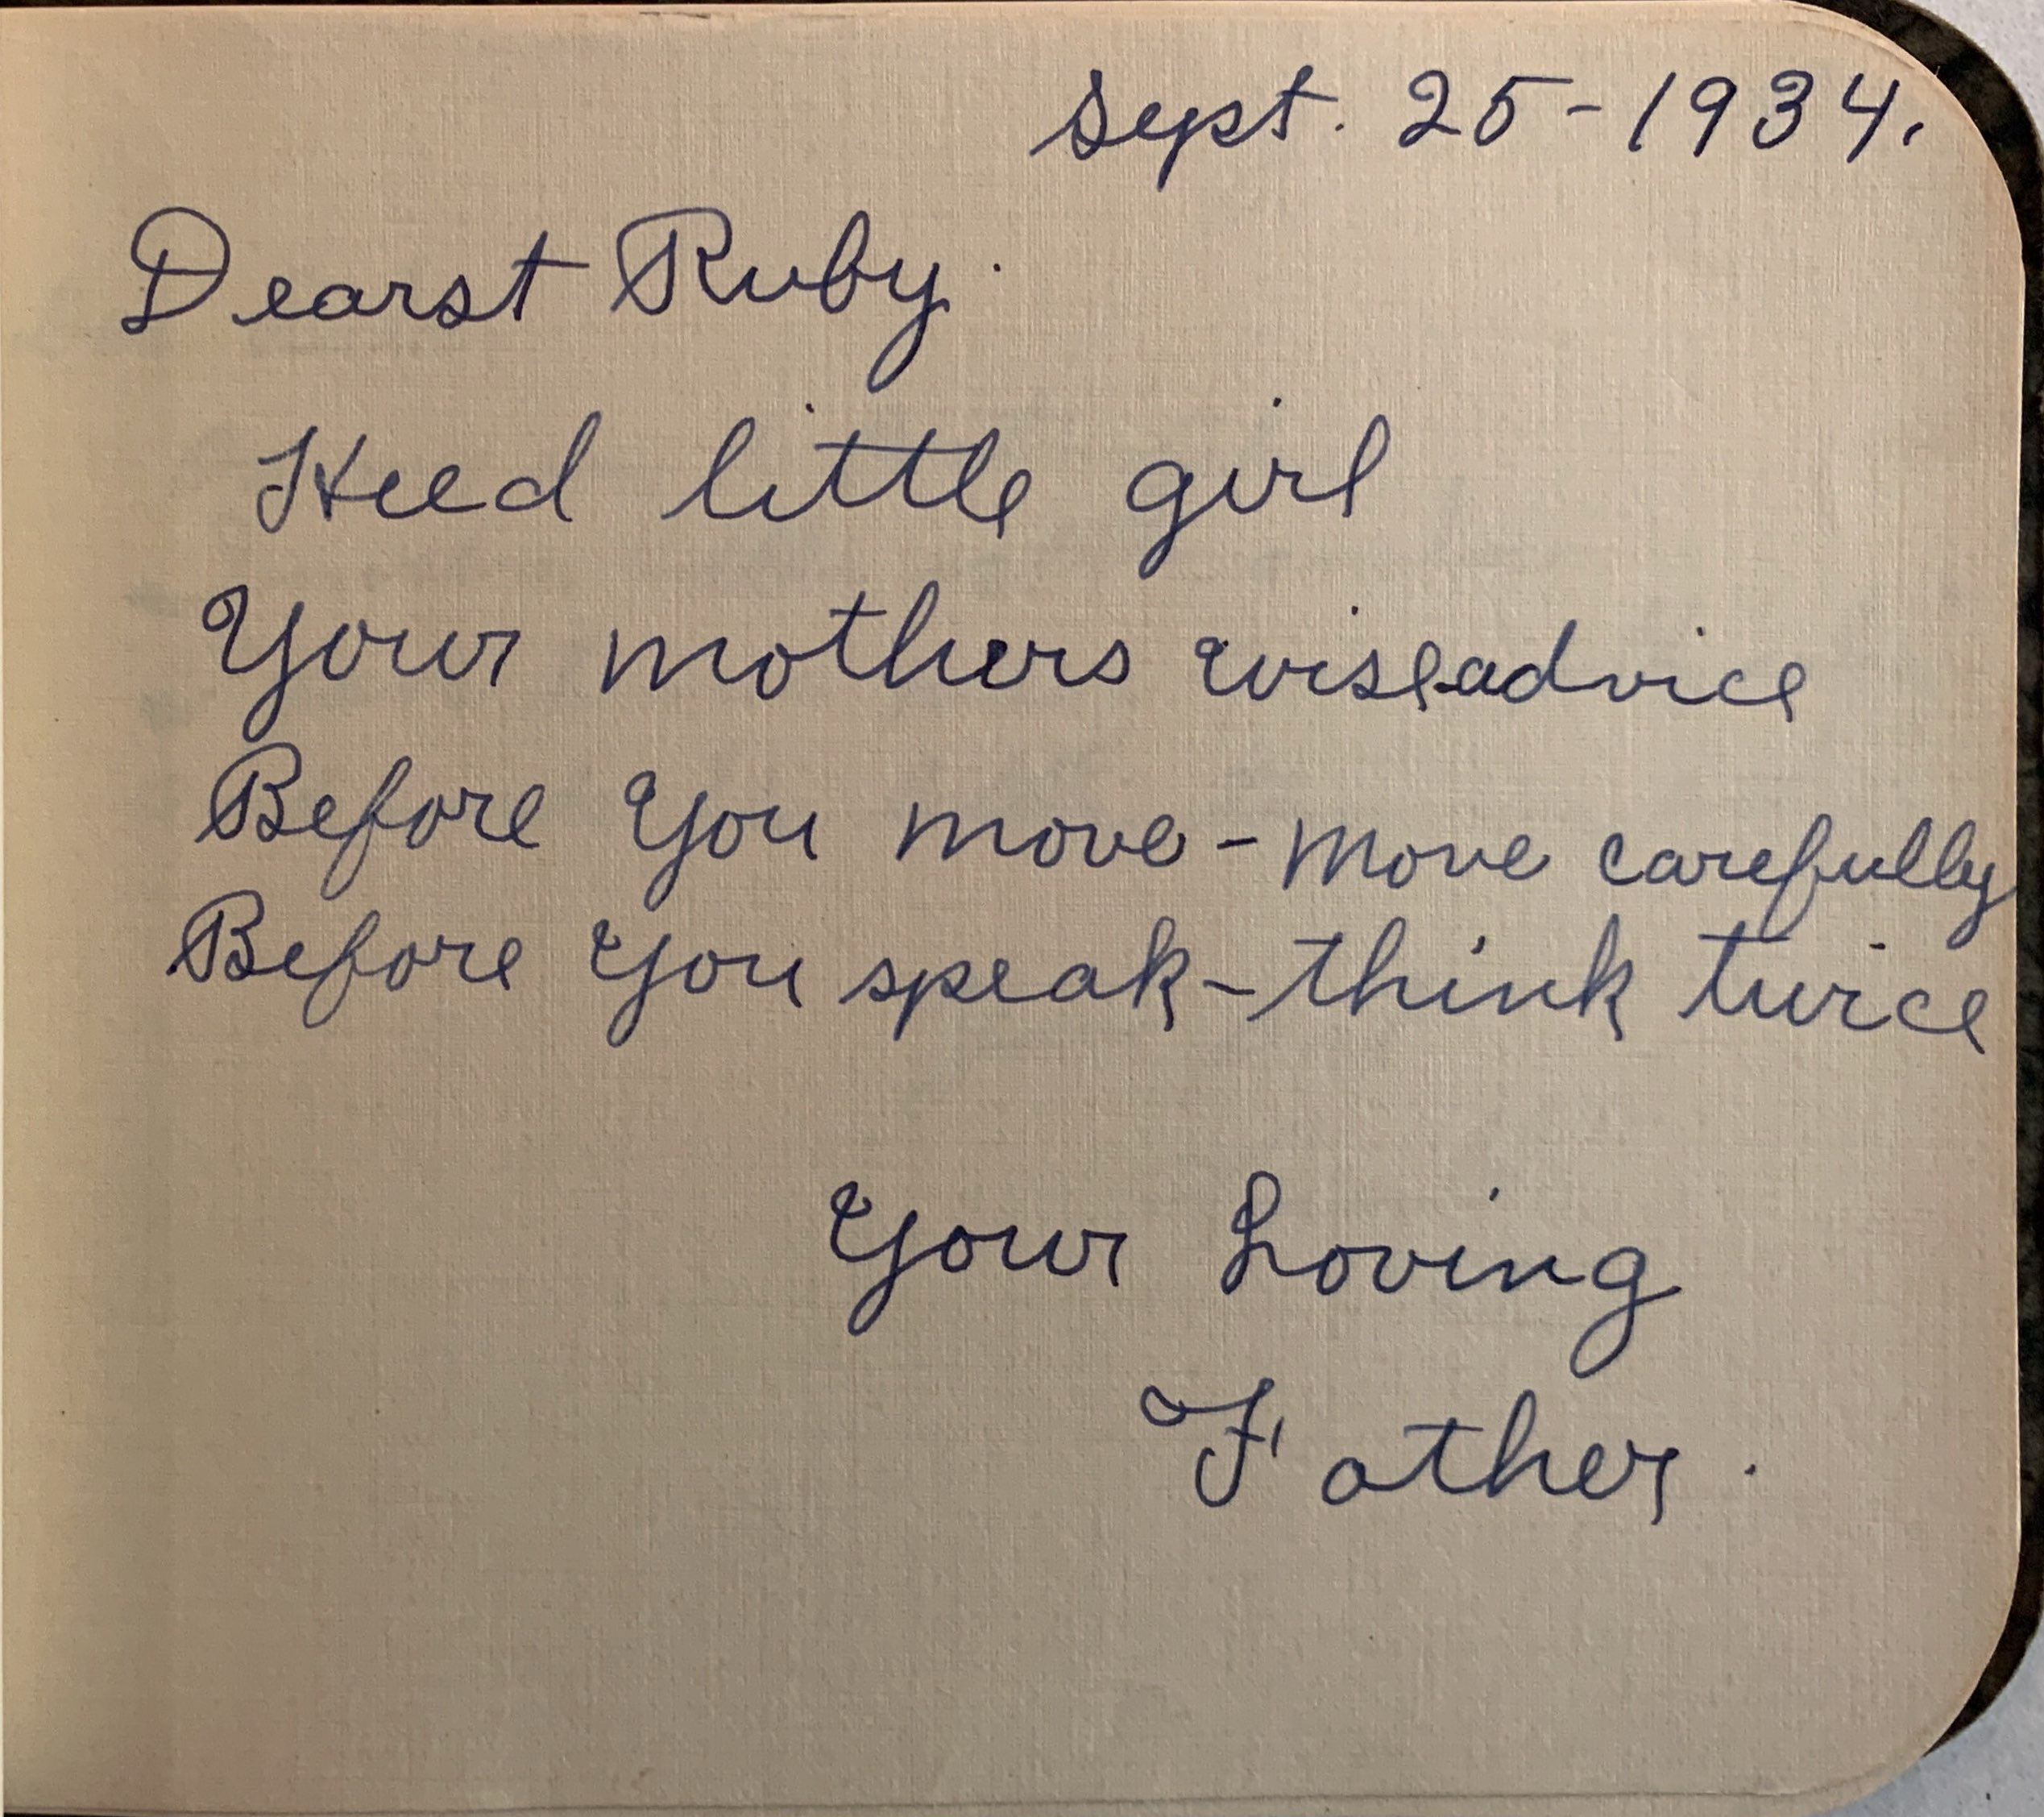 Sept. 25-1934.
Dearst Ruby.
Heed little girl
Your mothers wise advice
Before you move - move carefully
Before you speak - think twice
Your Loving
Father.